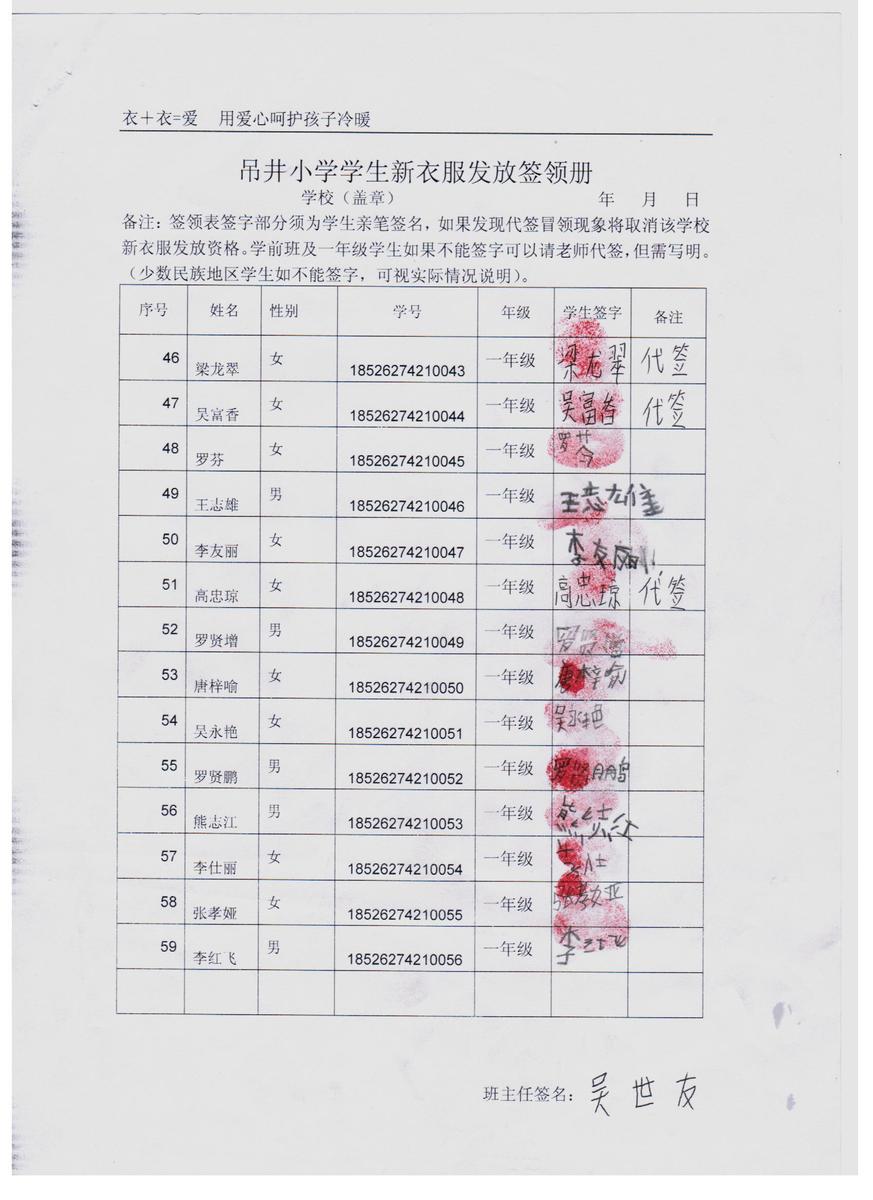 衣＋衣=爱 用爱心呵护孩子冷暖
吊井小学学生新衣服发放签领册
学校（盖章） 年 月 日
备注：签领表签字部分须为学生亲笔签名，如果发现代签冒领现象将取消该学校
新衣服发放资格。学前班及一年级学生如果不能签字可以请老师代签，但需写明。
（少数民族地区学生如不能签字，可视实际情况说明）。
序号 姓名 性别 学号 年级 学生签字 备注
46 梁龙翠 女 18526274210043 一年级 梁龙翠 代签
47 吴富香 女 18526274210044 一年级 吴富香 代签
48 罗芬 女 18526274210045 一年级 罗芬
49 王志雄 男 18526274210046 一年级 王志雄
50 李友丽 女 18526274210047 一年级 李友丽
51 高忠琼 女 18526274210048 一年级 高忠琼 代签
52 罗贤增 男 18526274210049 一年级 罗贤增
53 唐梓喻 女 18526274210050 一年级 唐梓喻
54 吴永艳 女 18526274210051 一年级 吴永艳
55 罗贤鹏 男 18526274210052 一年级 罗贤鹏
56 熊志江 男 18526274210053 一年级 熊志江
57 李仕丽 女 18526274210054 一年级 李仕
58 张孝娅 女 18526274210055 一年级 张孝娅
59 李红飞 男 18526274210056 一年级 李红飞
班主任签名：吴世友